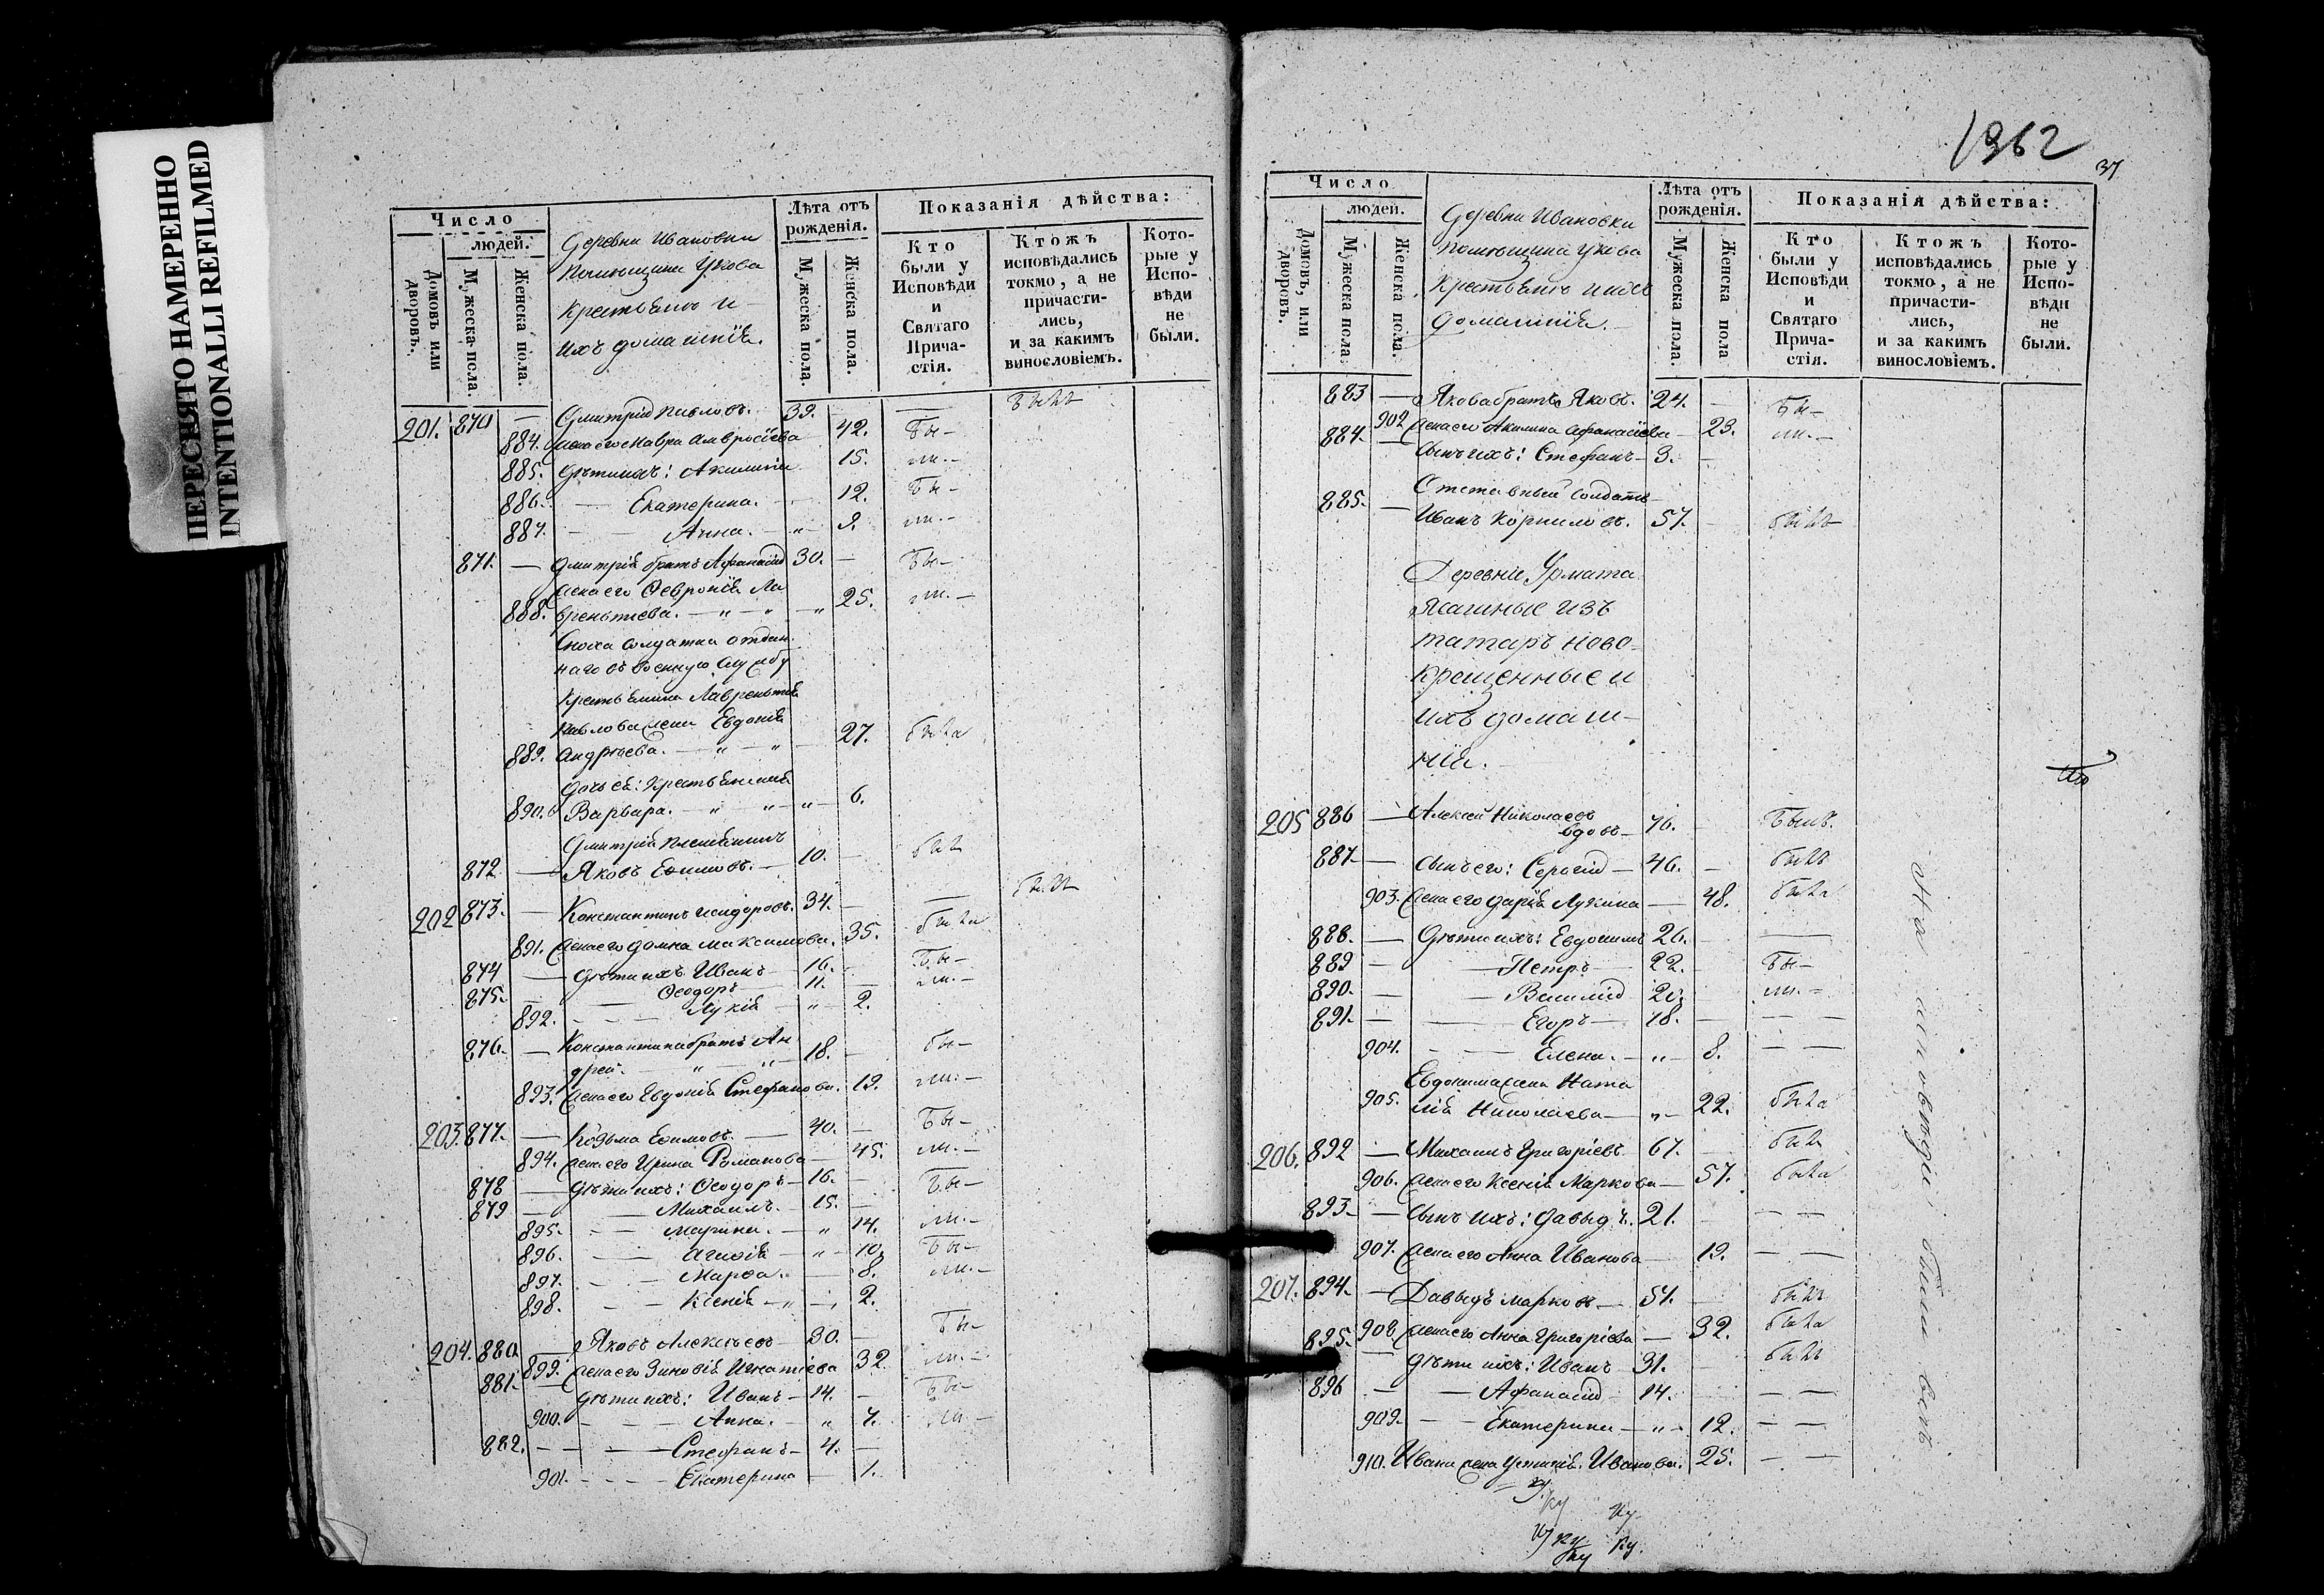 ПЕРЕСНЯТО НАМЕРЕННО
INTENTIONALLI REFILMED
Число
людей.
Домовъ или дворовъ.
Мужеска пола.
Женска пола.
Деревни Ивановки
помѣщика Ужова
Крестьяне и
ихъ домашнія.
Лѣта отъ рожденія.
Мужеска пола.
Женска пола.
Показанія дѣйства:
Кто были у Исповѣди и Святаго Причастія.
Ктожъ исповѣдались токмо, а не причастились, и за какимъ винословіемъ.
Которые у Исповѣди не были.
201. 870 — Дмитрій Павловъ. 39. — былъ
884. жена его Мавра Амвросіева 42. Бы-
885. Дѣти ихъ: Акилина 15. ли. -
886. — Екатерина. — 12. Бы-
887. — Анна. — 9. ли. -
871. — Дмитрія братъ Афанасій 30. — Бы-
жена его Ѳевронія Ла
888. врентьева. — 25. ли. -
Сноха солдатка отдан
наго въ военную службу
крестьянина Лаврентія
Павлова жена Евдокія
889. Андреева. — 27. была
дочь ея: Крестьянская
890. Варвара. — 6.
Дмитрія племянникъ
872 — Яковъ Ефимовъ. — 10. — былъ
202 873. — Константинъ Исидоровъ. 34. — былъ
891. жена его Домна Максимова. 35. была
874 — Дѣти ихъ Иванъ — 16. — Бы-
875. — Ѳеодоръ — 11. — ли. -
892. — Лукія — 2.
876. — Константина братъ Ан
дрей. — 18. — бы-
893. жена его Евдокія Стефанова. 19. ли. -
203. 877. — Козьма Ефимовъ. — 40. — Бы-
894. жена его Ирина Романова — 45. ли. -
878 — Дѣти ихъ: Ѳеодоръ — 16. — Бы-
879 — Михаилъ. — 15. —
895. — Марина. — 14. ли. -
896. — Агафія — 10. Бы-
897. — Марѳа. — 8. ли. -
898. — Ксенія — 2.
204. 880 — Яковъ Алексѣевъ — 30. — Бы-
899. жена его Зиновія Игнатіева 32. ли. -
881. — Дѣти ихъ: Иванъ — 14. — Бы-
900. — Анна. — 7. ли. -
882. — Стефанъ — 4. —
901. — Екатерина — 1.
1362
37
Число
людей.
Домовъ, или дворовъ.
Мужеска пола.
Женска пола.
Деревни Ивановки
помѣщика Ужова
Крестьяне и ихъ
домашнія.
Лѣта отъ рожденія.
Мужеска пола.
Женска пола
Показанія дѣйства:
Кто были у Исповѣди и Святаго Причастія.
Ктожъ исповѣдались токмо, а не причастились, и за какимъ винословіемъ.
Которые у Исповѣди не были.
883 — Якова братъ Яковъ. 24. — Бы-
902 жена его Акилина Афанасіева — 23. ли. -
884. — Сынъ ихъ: Стефанъ — 3. —
Отставный солдатъ
885. — Иванъ Корниловъ. 57. — былъ
Деревни Урмата
ясашные изъ
татаръ ново
крещенные и
ихъ домаш-
нія.
205 886 — Алексей Николаевъ
вдовъ — 76. — Былъ.
887 — сынъ его: Сергій — 46. — былъ
903. жена его Дарія Лукина — 48. была
888. — Дѣти ихъ: Евдокимъ 26. —
889 — Петръ — 22. — Бы-
890. — Василій 20. ли. -
891. — Егоръ — 18. — —
904. — Елена. — 8. — —
Евдокима жена Ната
905. лія Николаева — 22. была
206. 892 — Михаилъ Григоріевъ 67. — былъ
906. жена его Ксенія Маркова — 57. была
893 — Сынъ ихъ: Давыдъ. 21. — —
907. жена его Анна Иванова — 19. — —
207. 894. — Давыдъ Марковъ — 54. — былъ
908. жена его Анна Григоріева — 32. была
895. — Дѣти ихъ: Иванъ 31. былъ
896 — Афанасій 14. — —
909. — Екатерина — 12. — —
910. Ивана жена Устинія Иванова. 25. — —
На исповѣди были вси